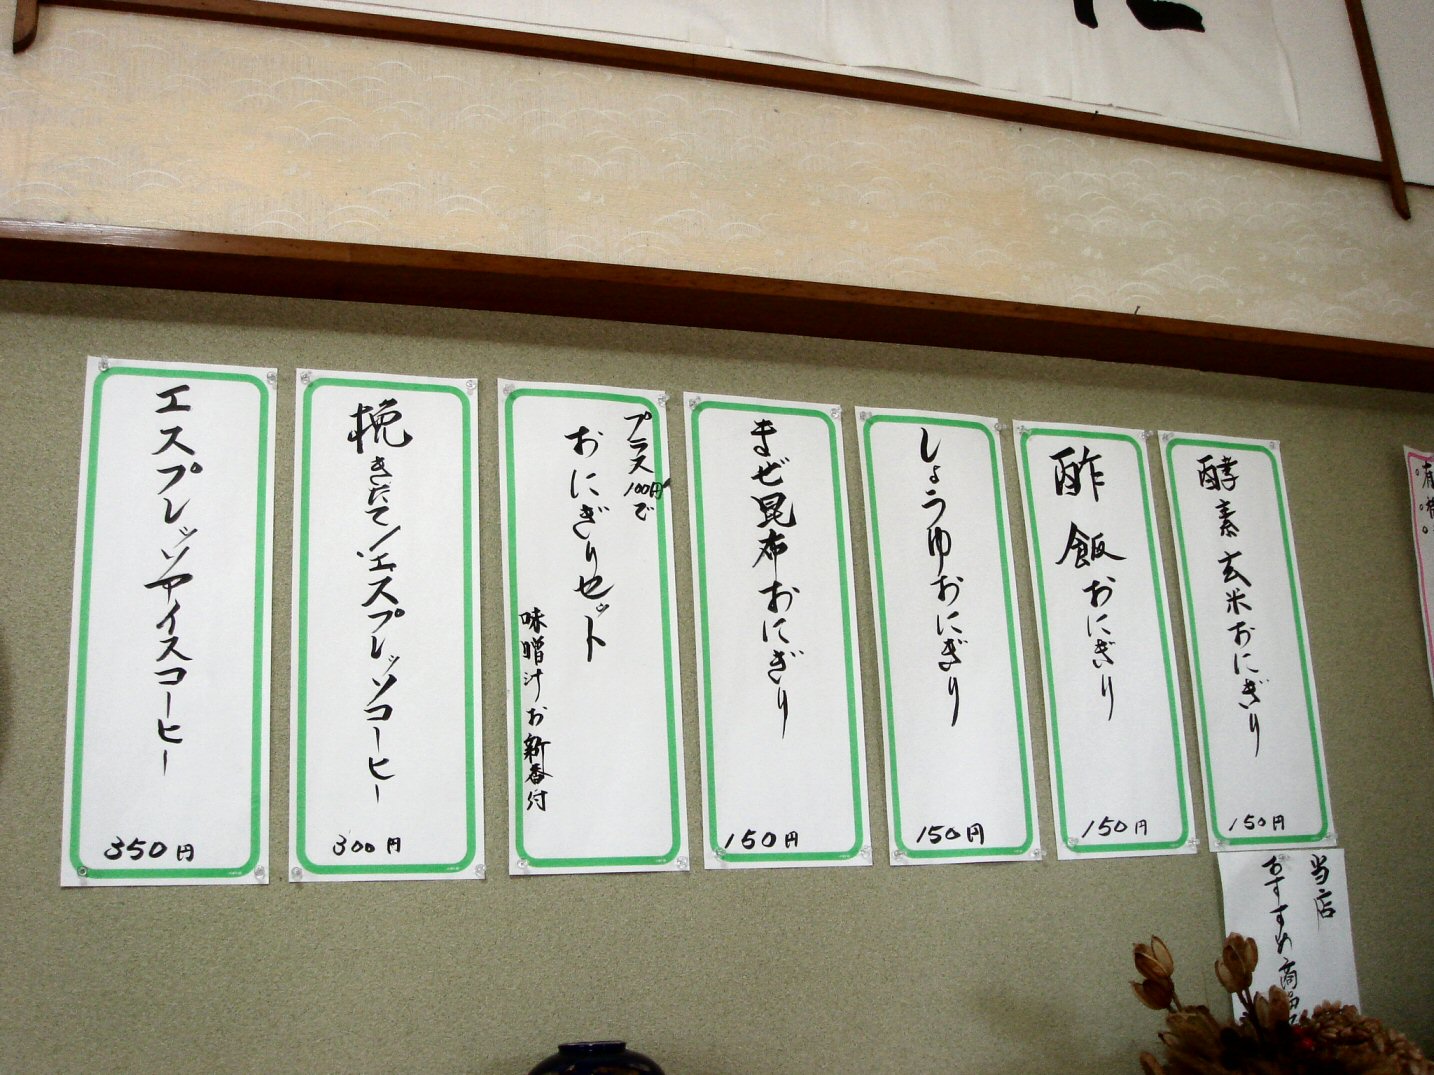 酵素玄米おにぎり
150円
当店
おすすめ商品
酢飯おにぎり
150円
しょうゆおにぎり
150円
まぜ昆布おにぎり
150円
プラス100円で
おにぎりセット
味噌汁お新香付
挽きたて!エスプレッソコーヒー
300円
エスプレッソアイスコーヒー
350円